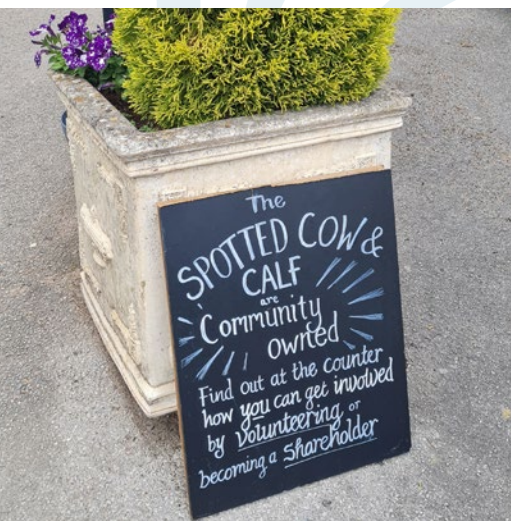 The
SPOTTED COW &
CALF
are
Community
owned
Find out at the counter
how you can get involved
by Volunteering or
becoming a Shareholder